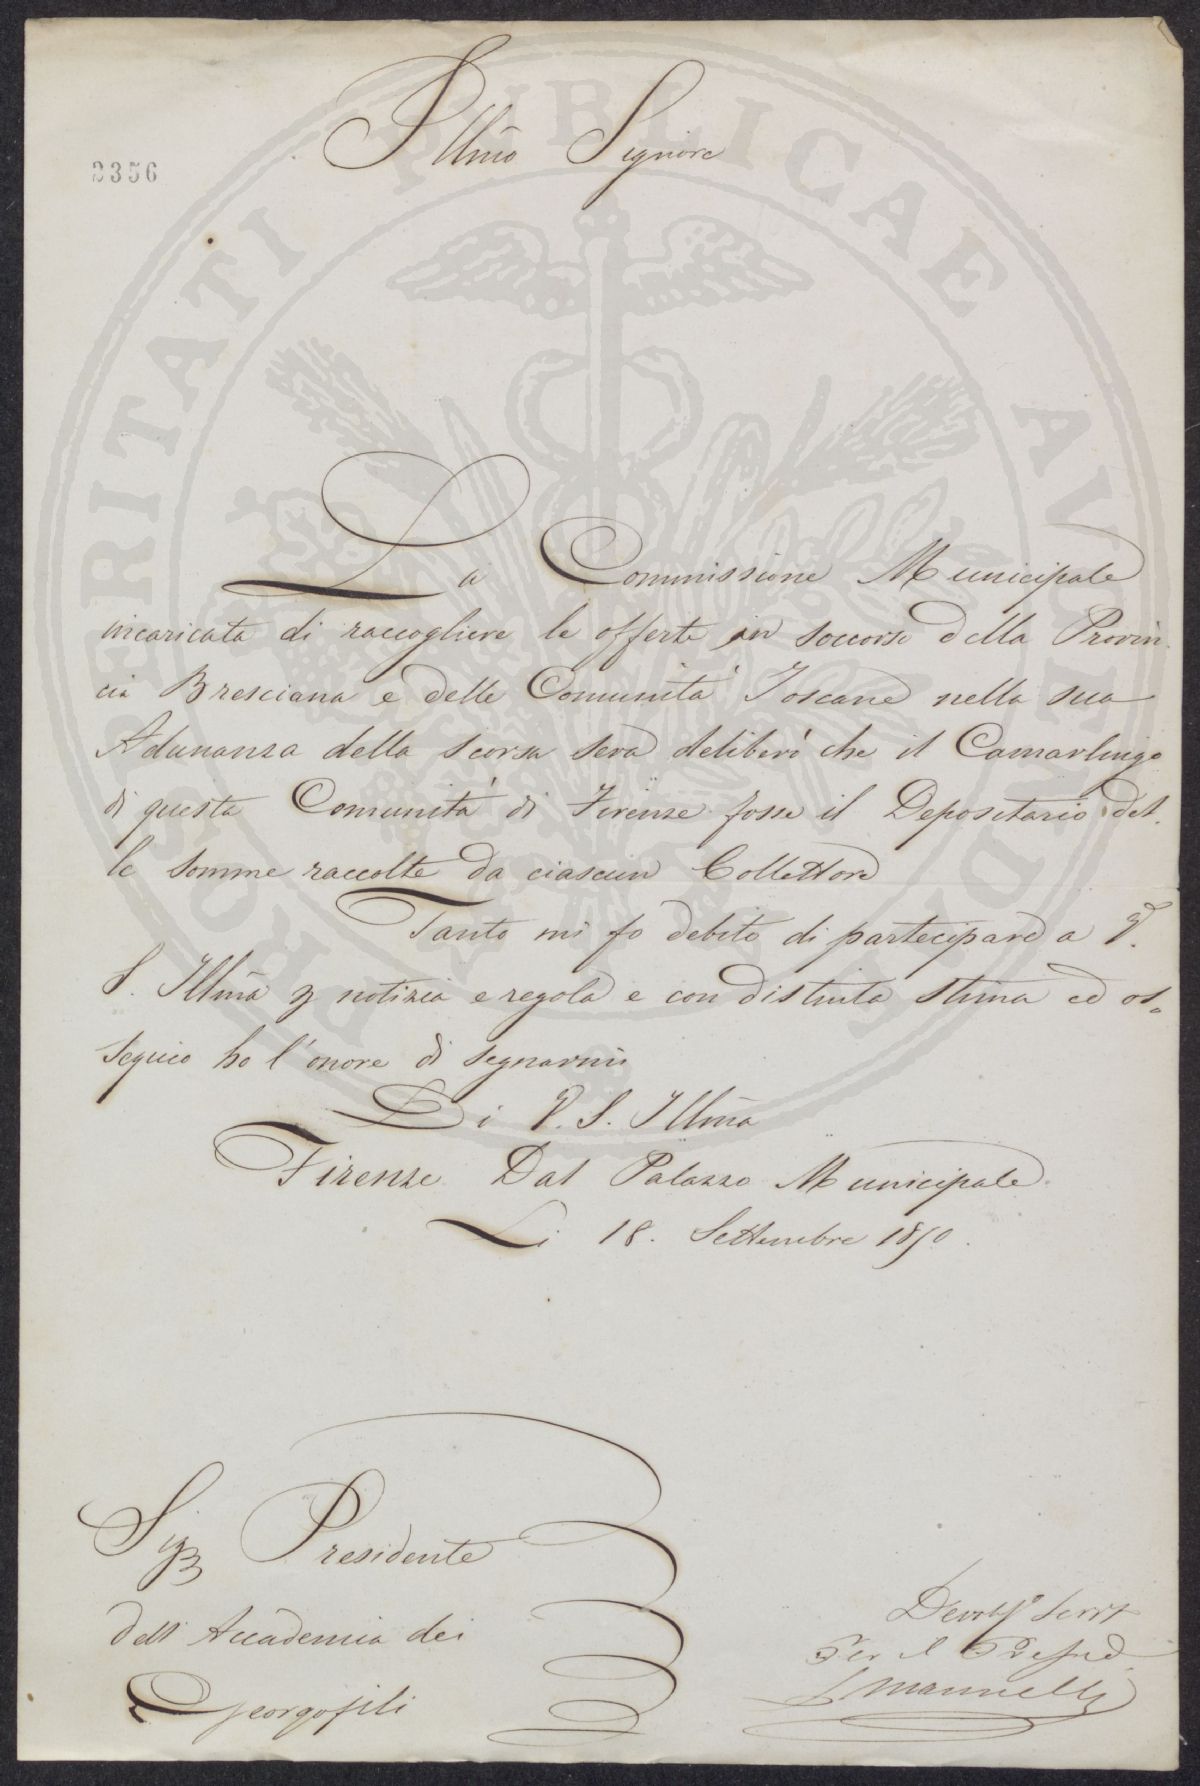 Illmo Signore
2356
La Commissione Municipale
incaricata di raccogliere le offerte in soccorso della Provin-
cia Bresciana e delle Comunità Toscane nella sua
Adunanza della scorsa sera deliberò che il Camarlingo
di questa Comunità di Firenze fosse il Depositario del-
le somme raccolte da ciascun Collettore
Tanto mi fo debito di partecipare a V.
S. Illma p notizia e regola e con distinta stima ed os-
sequio ho l'onore di segnarmi
Di V. S. Illma
Firenze Dal Palazzo Municipale
Li 18. Settembre 1850.
Sigr Presidente
dell'Accademia dei
Georgofili
Devmo Servr
Per il
L Mannelli
PROSPERITATI PUBLICAE AVGENDAE